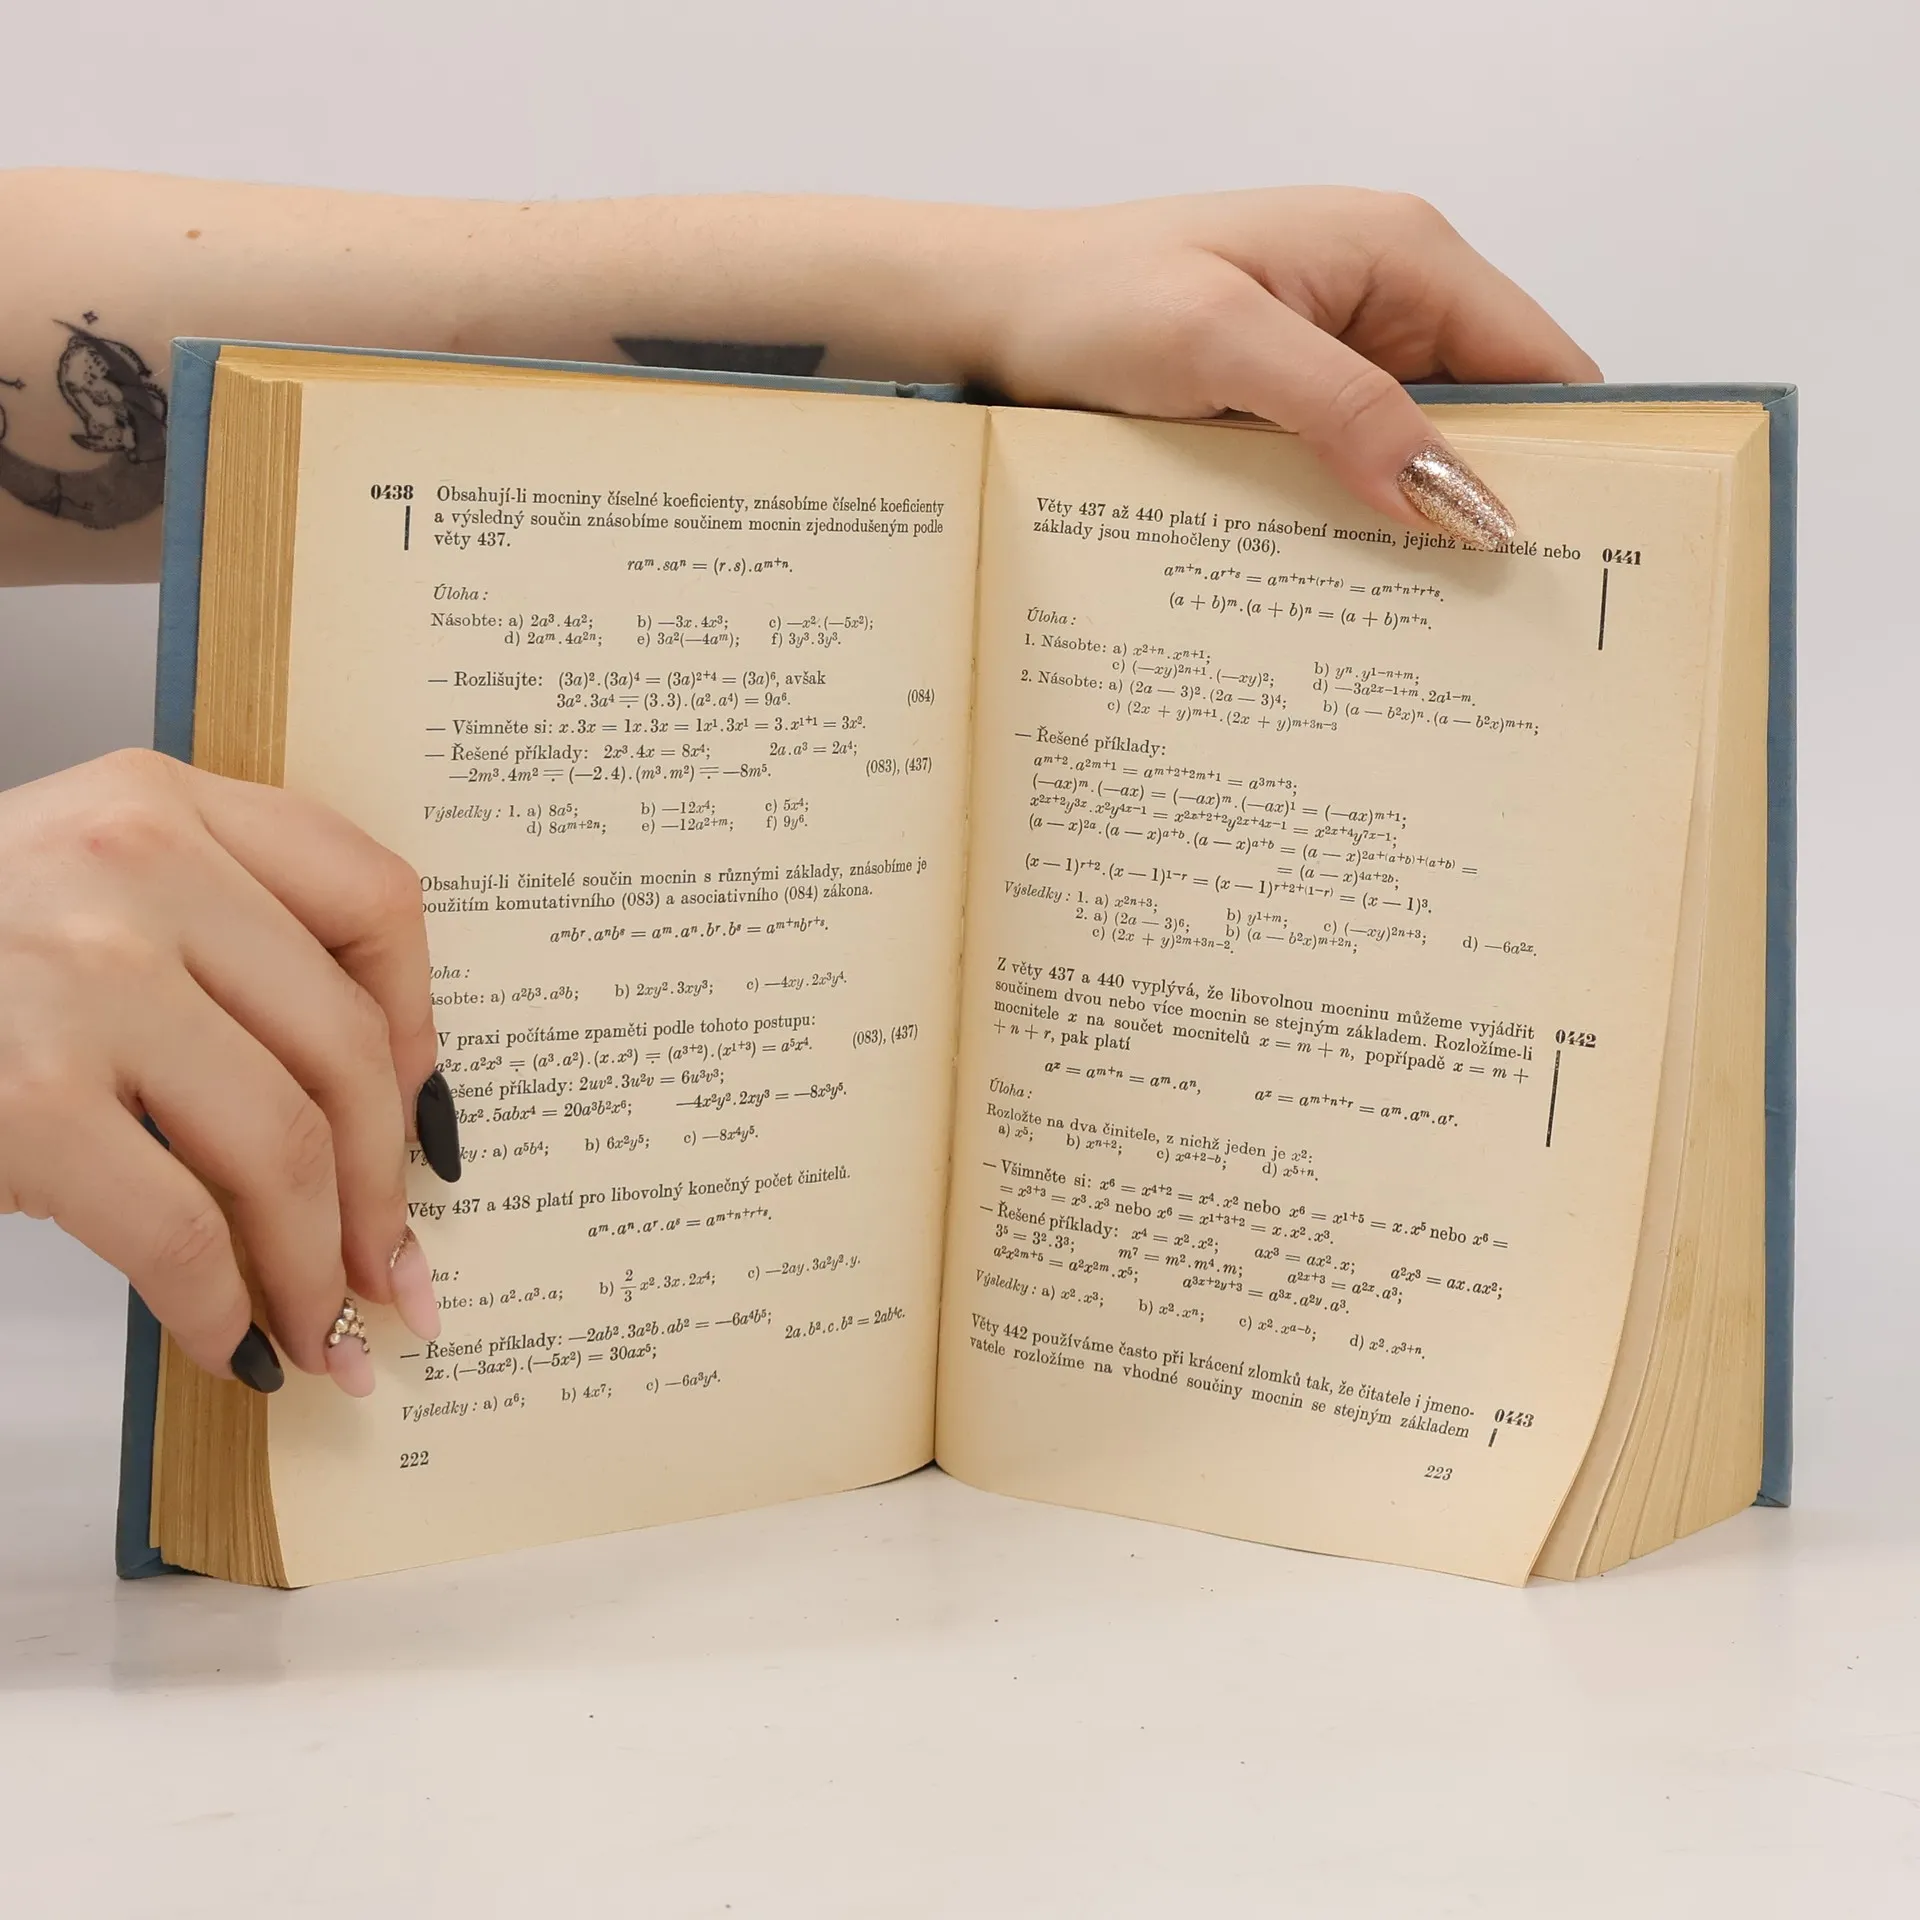 0438 Obsahují-li mocniny číselné koeficienty, znásobíme číselné koeficienty
a výsledný součin znásobíme součinem mocnin zjednodušeným podle
věty 437.
raᵐ.saⁿ = (r.s).aᵐ⁺ⁿ.
Úloha:
Násobte: a) 2a³.4a²; b) —3x.4x³; c) —x².(—5x²);
d) 2aᵐ.4a²ⁿ; e) 3a²(—4aᵐ); f) 3y³.3y³.
— Rozlišujte: (3a)².(3a)⁴ = (3a)²⁺⁴ = (3a)⁶, avšak
3a².3a⁴ = (3.3).(a².a⁴) = 9a⁶. (084)
— Všimněte si: x.3x = 1x.3x = 1x¹.3x¹ = 3.x¹⁺¹ = 3x².
— Řešené příklady: 2x³.4x = 8x⁴; 2a.a³ = 2a⁴;
—2m³.4m² = (—2.4).(m³.m²) = —8m⁵. (083), (437)
Výsledky: 1. a) 8a⁵; b) —12x⁴; c) 5x⁴;
d) 8aᵐ⁺²ⁿ; e) —12a²⁺ᵐ; f) 9y⁶.
Obsahují-li činitelé součin mocnin s různými základy, znásobíme je
použitím komutativního (083) a asociativního (084) zákona.
aᵐbʳ.aⁿbˢ = aᵐ.aⁿ.bʳ.bˢ = aᵐ⁺ⁿbʳ⁺ˢ.
a) a²b³.a³b; b) 2xy².3xy³; c) —4xy.2x³y⁴.
V praxi počítáme zpaměti podle tohoto postupu:
a³x.a²x³ = (a³.a²).(x.x³) = (a³⁺²).(x¹⁺³) = a⁵x⁴. (083), (437)
příklady: 2uv².3u²v = 6u³v³;
.5abx⁴ = 20a³b²x⁶; —4x²y².2xy³ = —8x³y⁵.
a) a⁵b⁴; b) 6x²y⁵; c) —8x⁴y⁵.
Věty 437 a 438 platí pro libovolný konečný počet činitelů.
aᵐ.aⁿ.aʳ.aˢ = aᵐ⁺ⁿ⁺ʳ⁺ˢ.
a) a².a³.a; b) 2/3 x².3x.2x⁴; c) —2ay.3a²y².y.
— Řešené příklady: —2ab².3a²b.ab² = —6a⁴b⁵;
2x.(—3ax²).(—5x²) = 30ax⁵; 2a.b².c.b² = 2ab⁴c.
Výsledky: a) a⁶; b) 4x⁷; c) —6a³y⁴.
222
Věty 437 až 440 platí i pro násobení mocnin, jejichž nebo 0441
základy jsou mnohočleny (036).
aᵐ⁺ⁿ.aʳ⁺ˢ = aᵐ⁺ⁿ⁺⁽ʳ⁺ˢ⁾ = aᵐ⁺ⁿ⁺ʳ⁺ˢ.
(a + b)ᵐ.(a + b)ⁿ = (a + b)ᵐ⁺ⁿ.
Úloha:
1. Násobte: a) x²⁺ⁿ.xⁿ⁺¹; b) yⁿ.y¹⁻ⁿ⁺ᵐ;
c) (—xy)²ⁿ⁺¹.(—xy)²; d) —3a²ˣ⁻¹⁺ᵐ.2a¹⁻ᵐ.
2. Násobte: a) (2a — 3)².(2a — 3)⁴; b) (a — b²x)ⁿ.(a — b²x)ᵐ⁺ⁿ;
c) (2x + y)ᵐ⁺¹.(2x + y)ᵐ⁺³ⁿ⁻³
— Řešené příklady:
aᵐ⁺².a²ᵐ⁺¹ = aᵐ⁺²⁺²ᵐ⁺¹ = a³ᵐ⁺³;
(—ax)ᵐ.(—ax) = (—ax)ᵐ.(—ax)¹ = (—ax)ᵐ⁺¹;
x²ˣ⁺²y³ˣ.x²y⁴ˣ⁻¹ = x²ˣ⁺²⁺²y³ˣ⁺⁴ˣ⁻¹ = x²ˣ⁺⁴y⁷ˣ⁻¹;
(a — x)²ᵃ.(a — x)ᵃ⁺ᵇ.(a — x)ᵃ⁺ᵇ = (a — x)²ᵃ⁺⁽ᵃ⁺ᵇ⁾⁺⁽ᵃ⁺ᵇ⁾ =
= (a — x)⁴ᵃ⁺²ᵇ;
(x — 1)ʳ⁺².(x — 1)¹⁻ʳ = (x — 1)ʳ⁺²⁺⁽¹⁻ʳ⁾ = (x — 1)³.
Výsledky: 1. a) x²ⁿ⁺³; b) y¹⁺ᵐ; c) (—xy)²ⁿ⁺³; d) —6a²ˣ.
2. a) (2a — 3)⁶; b) (a — b²x)ᵐ⁺²ⁿ;
c) (2x + y)²ᵐ⁺³ⁿ⁻².
Z věty 437 a 440 vyplývá, že libovolnou mocninu můžeme vyjádřit 0442
součinem dvou nebo více mocnin se stejným základem. Rozložíme-li
mocnitele x na součet mocnitelů x = m + n, popřípadě x = m +
+ n + r, pak platí
aˣ = aᵐ⁺ⁿ = aᵐ.aⁿ, aˣ = aᵐ⁺ⁿ⁺ʳ = aᵐ.aᵐ.aʳ.
Úloha:
Rozložte na dva činitele, z nichž jeden je x²:
a) x⁵; b) xⁿ⁺²; c) xᵃ⁺²⁻ᵇ; d) x⁵⁺ⁿ.
— Všimněte si: x⁶ = x⁴⁺² = x⁴.x² nebo x⁶ = x¹⁺⁵ = x.x⁵ nebo x⁶ =
= x³⁺³ = x³.x³ nebo x⁶ = x¹⁺³⁺² = x.x².x³.
— Řešené příklady: x⁴ = x².x²; ax³ = ax².x; a²x³ = ax.ax²;
3⁵ = 3².3³; m⁷ = m².m⁴.m; a²ˣ⁺³ = a²ˣ.a³;
a²x²ᵐ⁺⁵ = a²x²ᵐ.x⁵; a³ˣ⁺²ʸ⁺³ = a³ˣ.a²ʸ.a³.
Výsledky: a) x².x³; b) x².xⁿ; c) x².xᵃ⁻ᵇ; d) x².x³⁺ⁿ.
Věty 442 používáme často při krácení zlomků tak, že čitatele i jmeno- 0443
vatele rozložíme na vhodné součiny mocnin se stejným základem
223